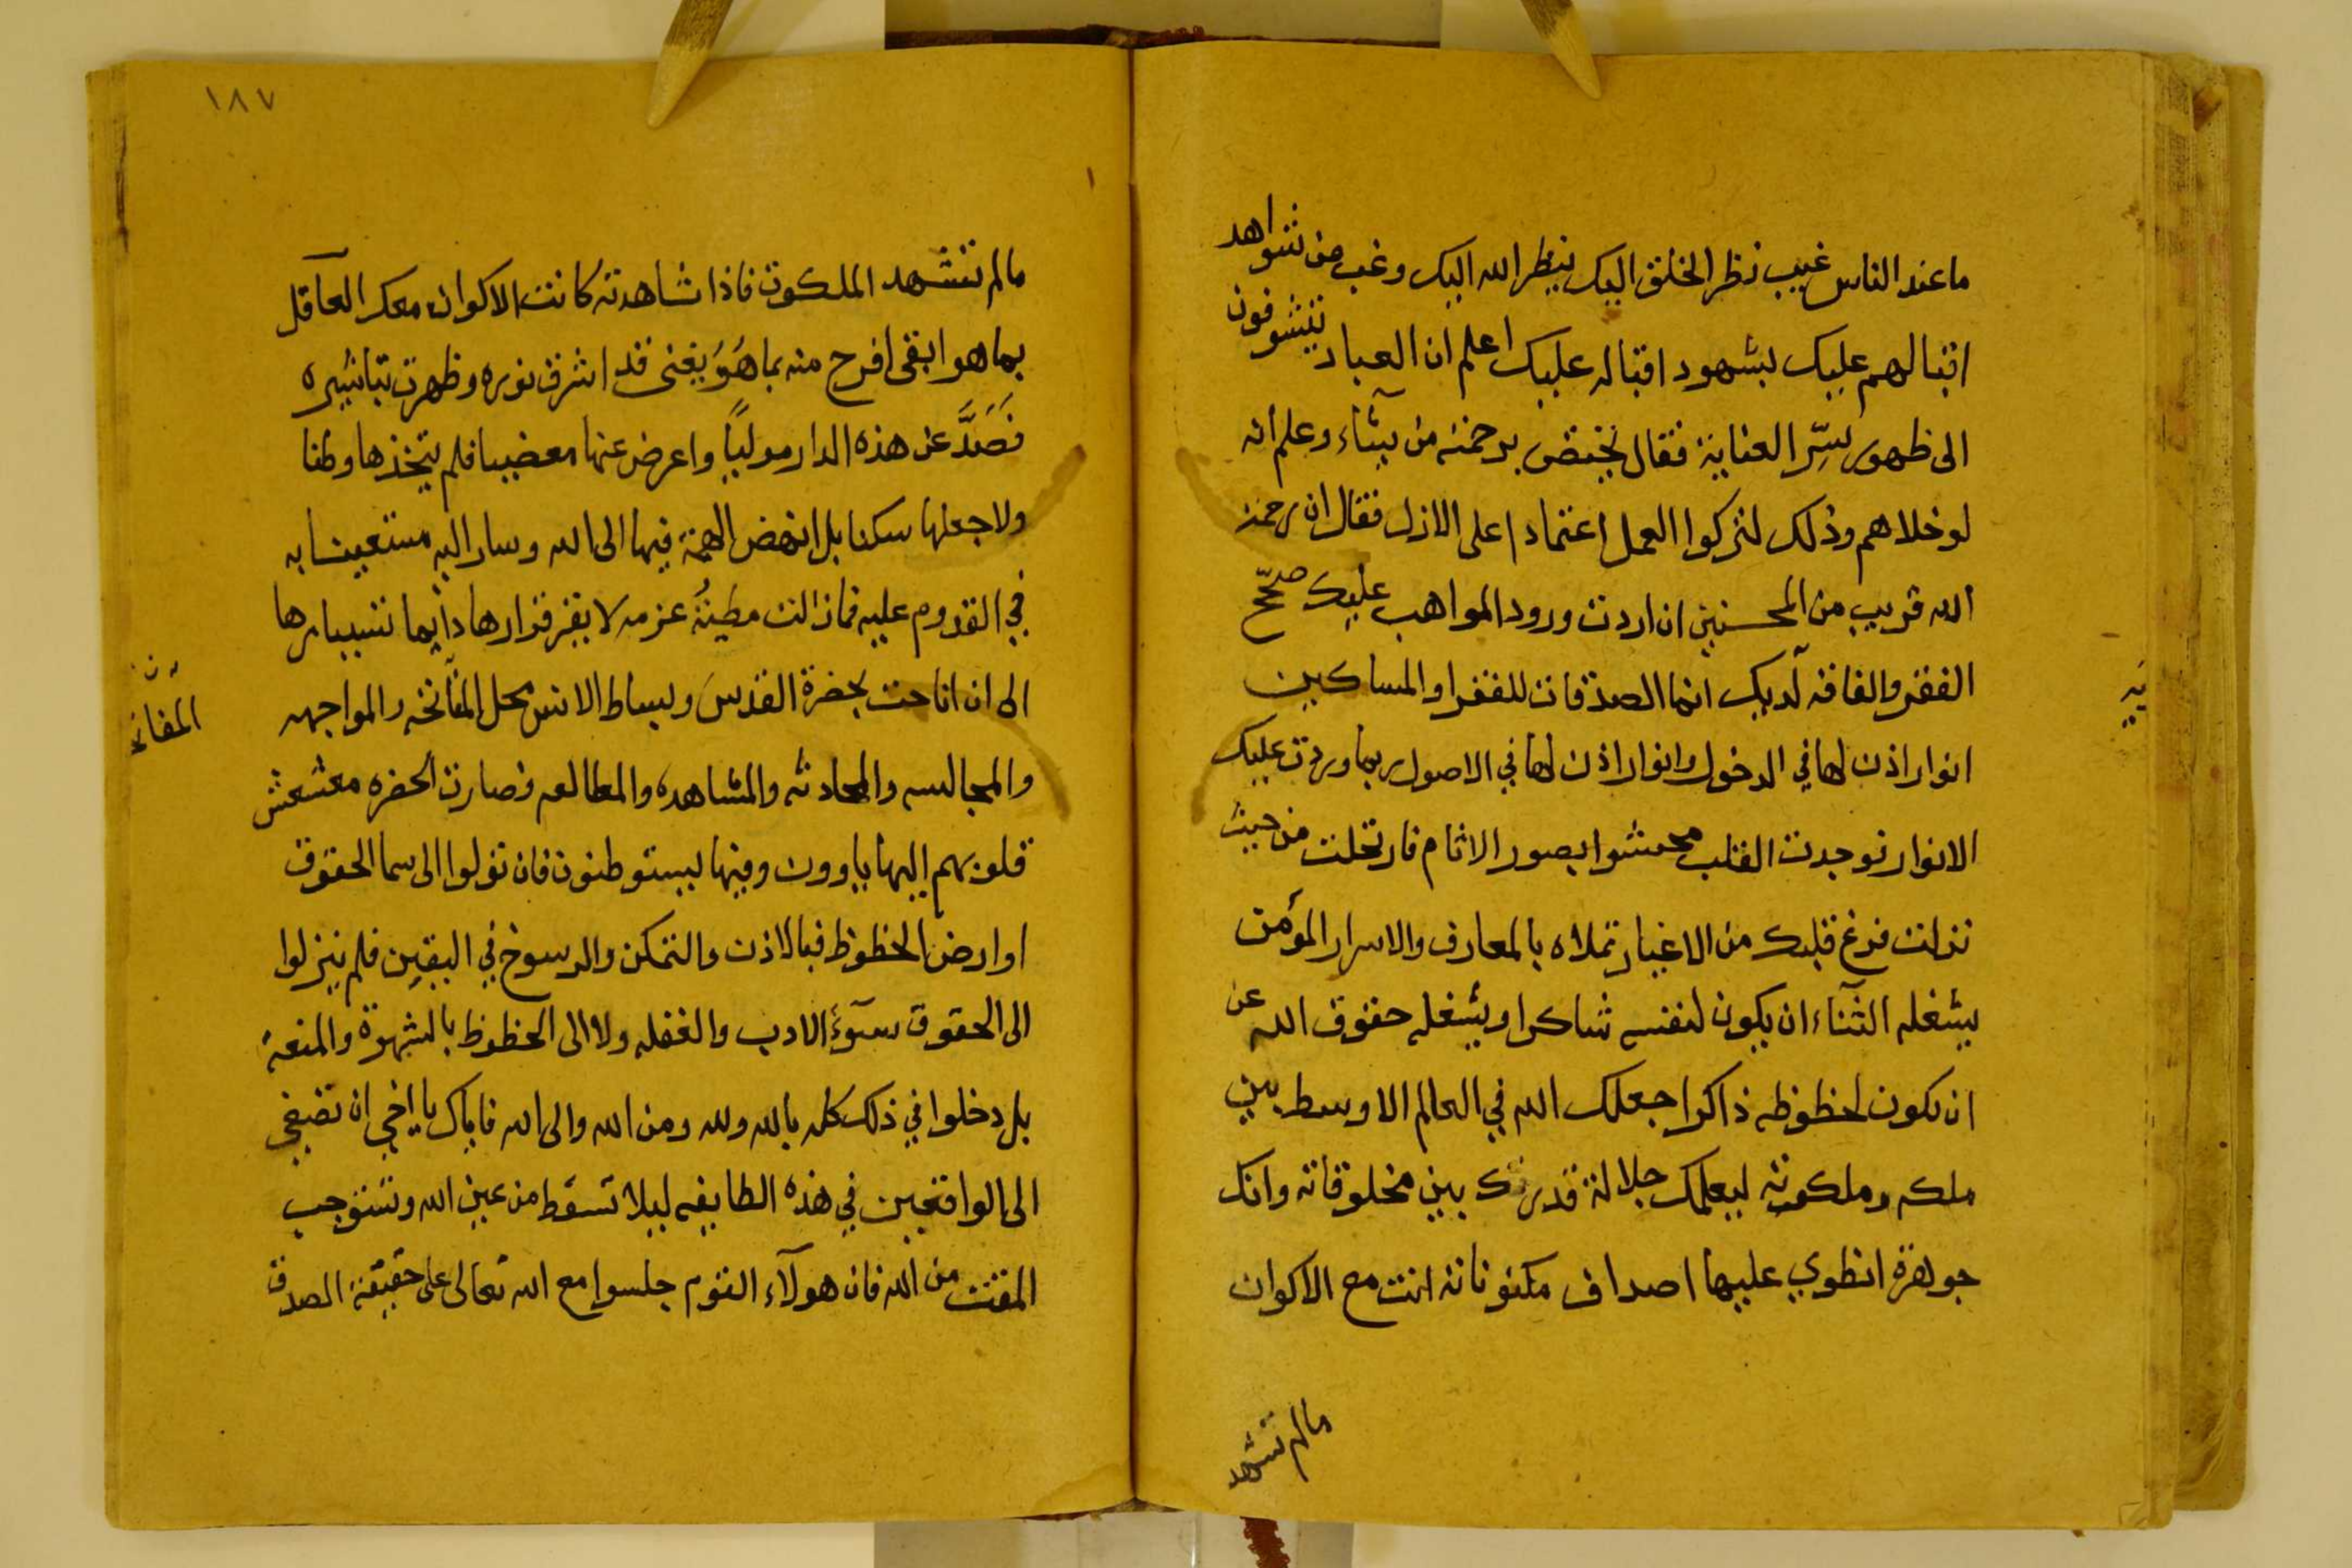 ما عند الناس غيب نظر الخلق اليك بنظر الله اليك وغب من شواهد
اقبالهم عليك بشهود اقباله عليك اعلم ان العباد يتشوفون
الى ظهور سِّر العناية فقال يختص برحمته من يشآء وعلم انه
لو خلاهم وذلك لتركوا العمل اعتمادا على الازل فقال ان رحمة
الله قريب من المحسنين ان اردت ورود المواهب عليك صحّح
الفقر والفاقه لديك انما الصدقات للفقرا والمساكين
انوار اذن لها في الدخول وانوار اذن لها في الاصول ربما وردت عليك
الانوار فوجدت القلب محشوا بصور الاثام فارتحلت من حيث
نزلت فرغ قلبك من الاغيار تملاه بالمعارف والاسرار المؤمن
يشغله الثنآء ان يكون لنفسه شاكرا ويشغله حقوق الله عن
ان يكون لحظوظه ذاكرا جعلك الله في العالم الاوسط بين
ملكه وملكوته ليعلمك جلالة قدرتك بين مخلوقاته وانك
جوهرة انطوي عليها اصداف مكنوناته انت مع الاكوان
مالم تشهد
١٨٧
مالم تشهد الملكوت فاذا شاهدته كانت الاكوان معك العاقل
بما هو ابقى افرح منه بما هُوَ يفنى قد اشرق نوره وظهرت تباشيره
فَصَدَّ عن هذه الدار موليًا واعرض عنها مغضبا فلم يتخذها وطنا
ولا جعلها سكنا بل انهض الهمة فيها الى الله وسار اليه مستعينا به
في القدوم عليه فما زالت مطيةُ عزمه لا يقر قرارها دايما تسيارها
الى ان اناخت بحضرة القدس وبساط الانس محل المفاتحه والمواجهه
المفاتحه
والمجالسه والمحادثه والمشاهده والمطالعه فصارت الحضره معشعش
قلوبهم اليها ياوون وفيها يستوطنون فان نزلوا الى سما الحقوق
او ارض الحظوظ فبالاذن والتمكن والرسوخ في اليقين فلم ينزلوا
الى الحقوق بسوٓء الادب والغفله ولا الى الحظوظ بالشهوة والمتعة
بل دخلوا في ذلك كله بالله ولله ومن الله والى الله فاياك يا اخي ان تصغي
الى الواقعين في هذه الطايفه ليلا تسقط من عين الله وتستوجب
المقت من الله فان هولآء القوم جلسوا مع الله تعالى على حقيقة الصدق